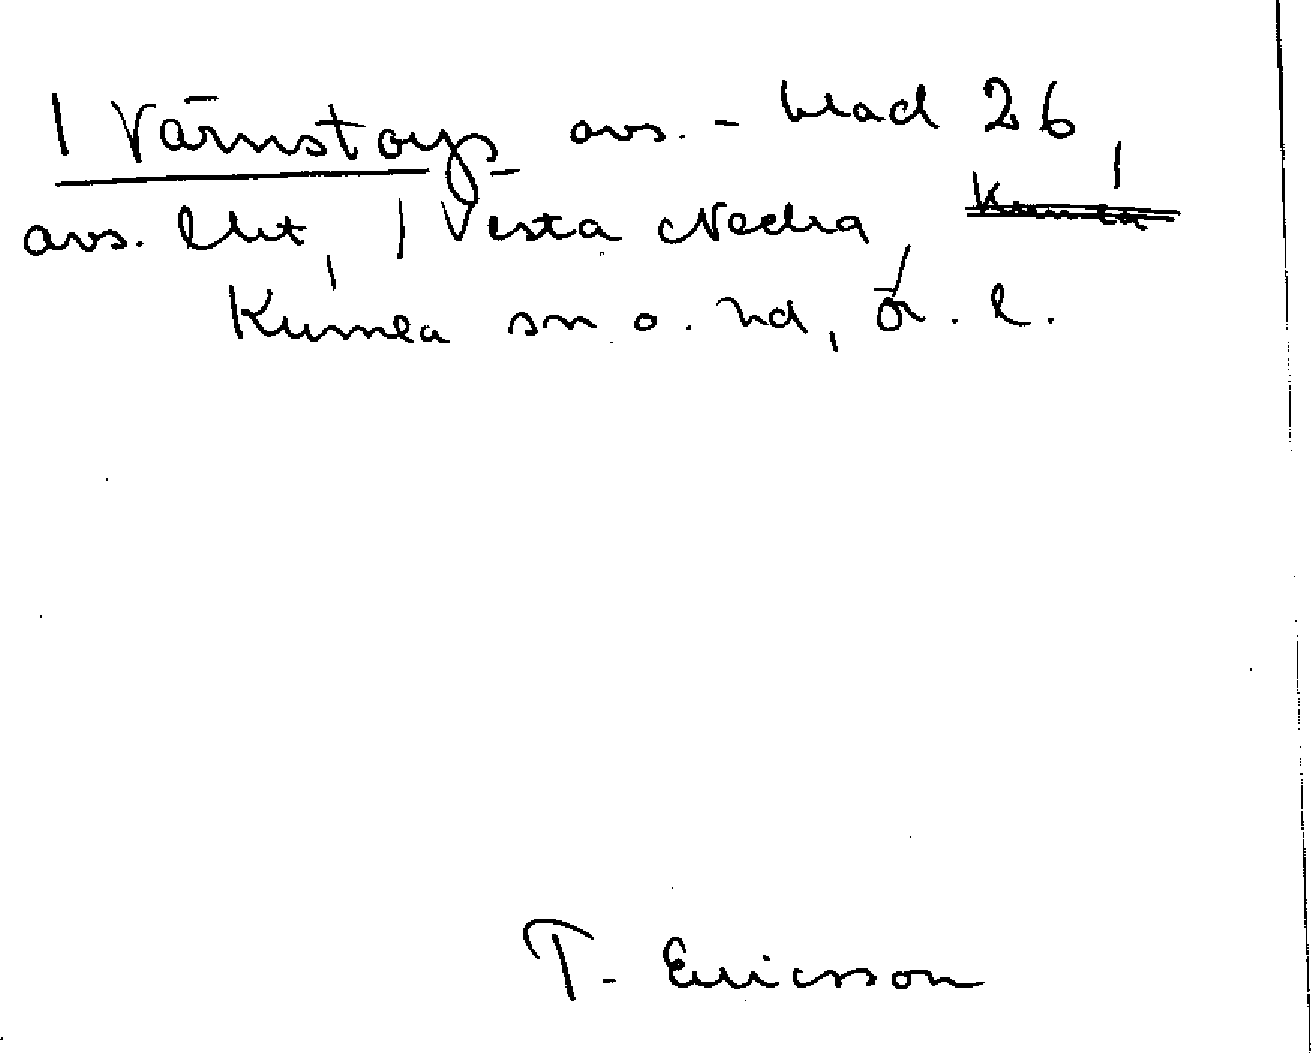 1 Värnstorp - avs. - blad 26,
avs. Elit, 1 Västa Nedra,
Kumla sn o. hd, Ör. l.
T. Ericsson